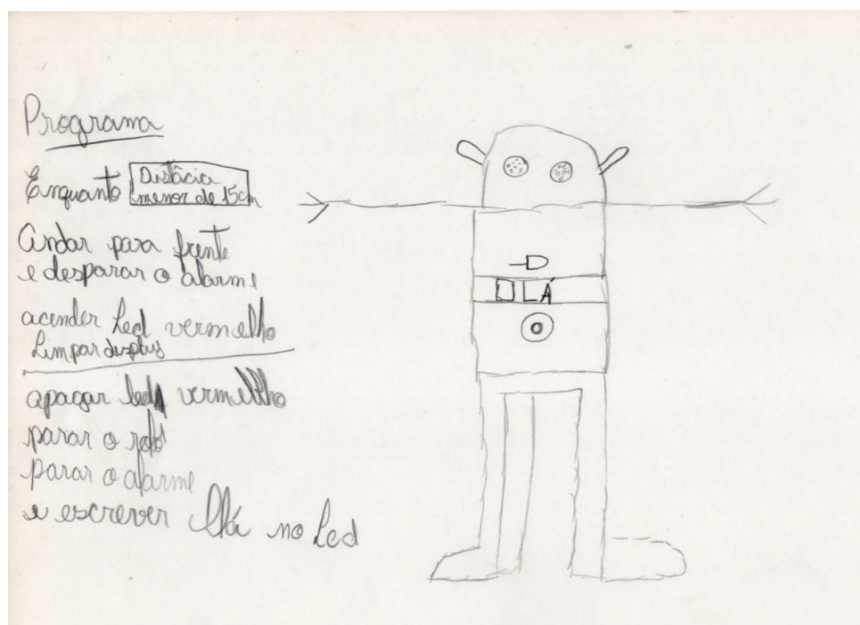 Programa
Enquanto
Distâcia
menor de 15cm
Andar para frente
e desparar o alarme
acender Led vermelho
Limpar display
apagar led vermelho
parar o robô
parar o alarme
e escrever Olá no Led
OLÁ